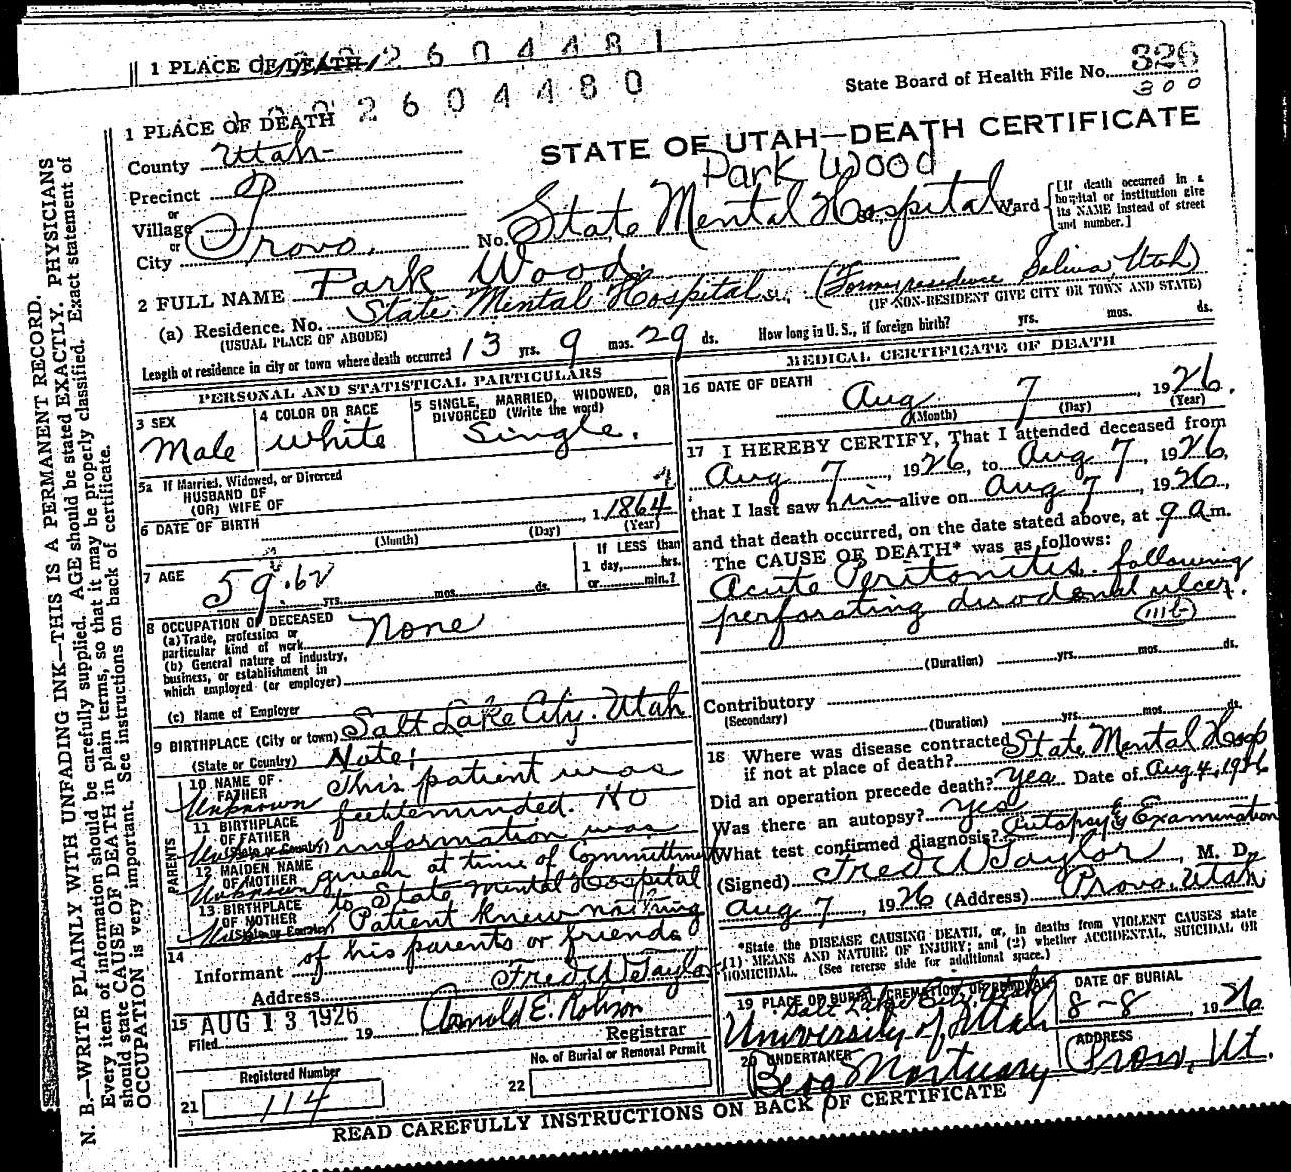 1 PLACE OF DEATH
2604481
2604480
State Board of Health File No. 326
300
1 PLACE OF DEATH
STATE OF UTAH—DEATH CERTIFICATE
County Utah
Park Wood
Precinct
or
Village
or
City Provo. No. State Mental Hospital Ward
[If death occurred in a hospital or institution give its NAME instead of street and number.]
2 FULL NAME Park Wood.
(a) Residence. No. State Mental Hospital St. (Former residence Salina, Utah)
(USUAL PLACE OF ABODE)
(IF NON-RESIDENT GIVE CITY OR TOWN AND STATE)
Length of residence in city or town where death occurred 13 yrs. 9 mos. 29 ds. How long in U. S., if foreign birth? yrs. mos. ds.
PERSONAL AND STATISTICAL PARTICULARS
3 SEX
Male
4 COLOR OR RACE
White
5 SINGLE, MARRIED, WIDOWED, OR DIVORCED (Write the word)
Single.
5a If Married, Widowed, or Divorced
HUSBAND OF
(OR) WIFE OF
6 DATE OF BIRTH 1864
(Month) (Day) (Year)
7 AGE 59.62 yrs. mos. ds.
If LESS than
1 day, hrs.
or min.?
8 OCCUPATION OF DECEASED
(a) Trade, profession or particular kind of work None
(b) General nature of industry, business, or establishment in which employed (or employer)
(c) Name of Employer
9 BIRTHPLACE (City or town) Salt Lake City. Utah
(State or Country)
Note:
PARENTS
10 NAME OF FATHER
Unknown
This patient was
11 BIRTHPLACE OF FATHER
(State or Country)
feebleminded. No
information was
12 MAIDEN NAME OF MOTHER
Unknown
given at time of Committment
to State Mental Hospital
13 BIRTHPLACE OF MOTHER
(State or Country)
Patient knew nothing
of his parents or friends
14
Informant Fred W Taylor
Address
15
Filed AUG 13 1926 19
Arnold E. Robison
Registrar
No. of Burial or Removal Permit
Registered Number
21 114
22
MEDICAL CERTIFICATE OF DEATH
16 DATE OF DEATH
Aug 7, 1926.
(Month) (Day) (Year)
17 I HEREBY CERTIFY, That I attended deceased from
Aug 7, 1926, to Aug 7, 1926,
that I last saw him alive on Aug 7, 1926,
and that death occurred, on the date stated above, at 9 a m.
The CAUSE OF DEATH* was as follows:
Acute Peritonitis following
perforating duodenal ulcer.
111b
(Duration) yrs. mos. ds.
Contributory
(Secondary)
(Duration) yrs. mos. ds.
18 Where was disease contracted
if not at place of death? State Mental Hosp
Did an operation precede death? Yes Date of Aug 4, 1926
Was there an autopsy? Yes
What test confirmed diagnosis? Autopsy & Examination
(Signed) Fred W Taylor, M. D.
Aug 7, 1926 (Address) Provo. Utah
*State the DISEASE CAUSING DEATH, or, in deaths from VIOLENT CAUSES state
(1) MEANS AND NATURE OF INJURY; and (2) whether ACCIDENTAL, SUICIDAL OR
HOMICIDAL. (See reverse side for additional space.)
19 PLACE OF BURIAL, CREMATION, OR REMOVAL
Salt Lake City, Utah
University of Utah
DATE OF BURIAL
8-8, 1926
20 UNDERTAKER
Berg Mortuary
ADDRESS
Provo, Ut.
READ CAREFULLY INSTRUCTIONS ON BACK OF CERTIFICATE
N. B.—WRITE PLAINLY WITH UNFADING INK—THIS IS A PERMANENT RECORD.
Every item of information should be carefully supplied. AGE should be stated EXACTLY. PHYSICIANS
should state CAUSE OF DEATH in plain terms, so that it may be properly classified. Exact statement of
OCCUPATION is very important. See instructions on back of certificate.